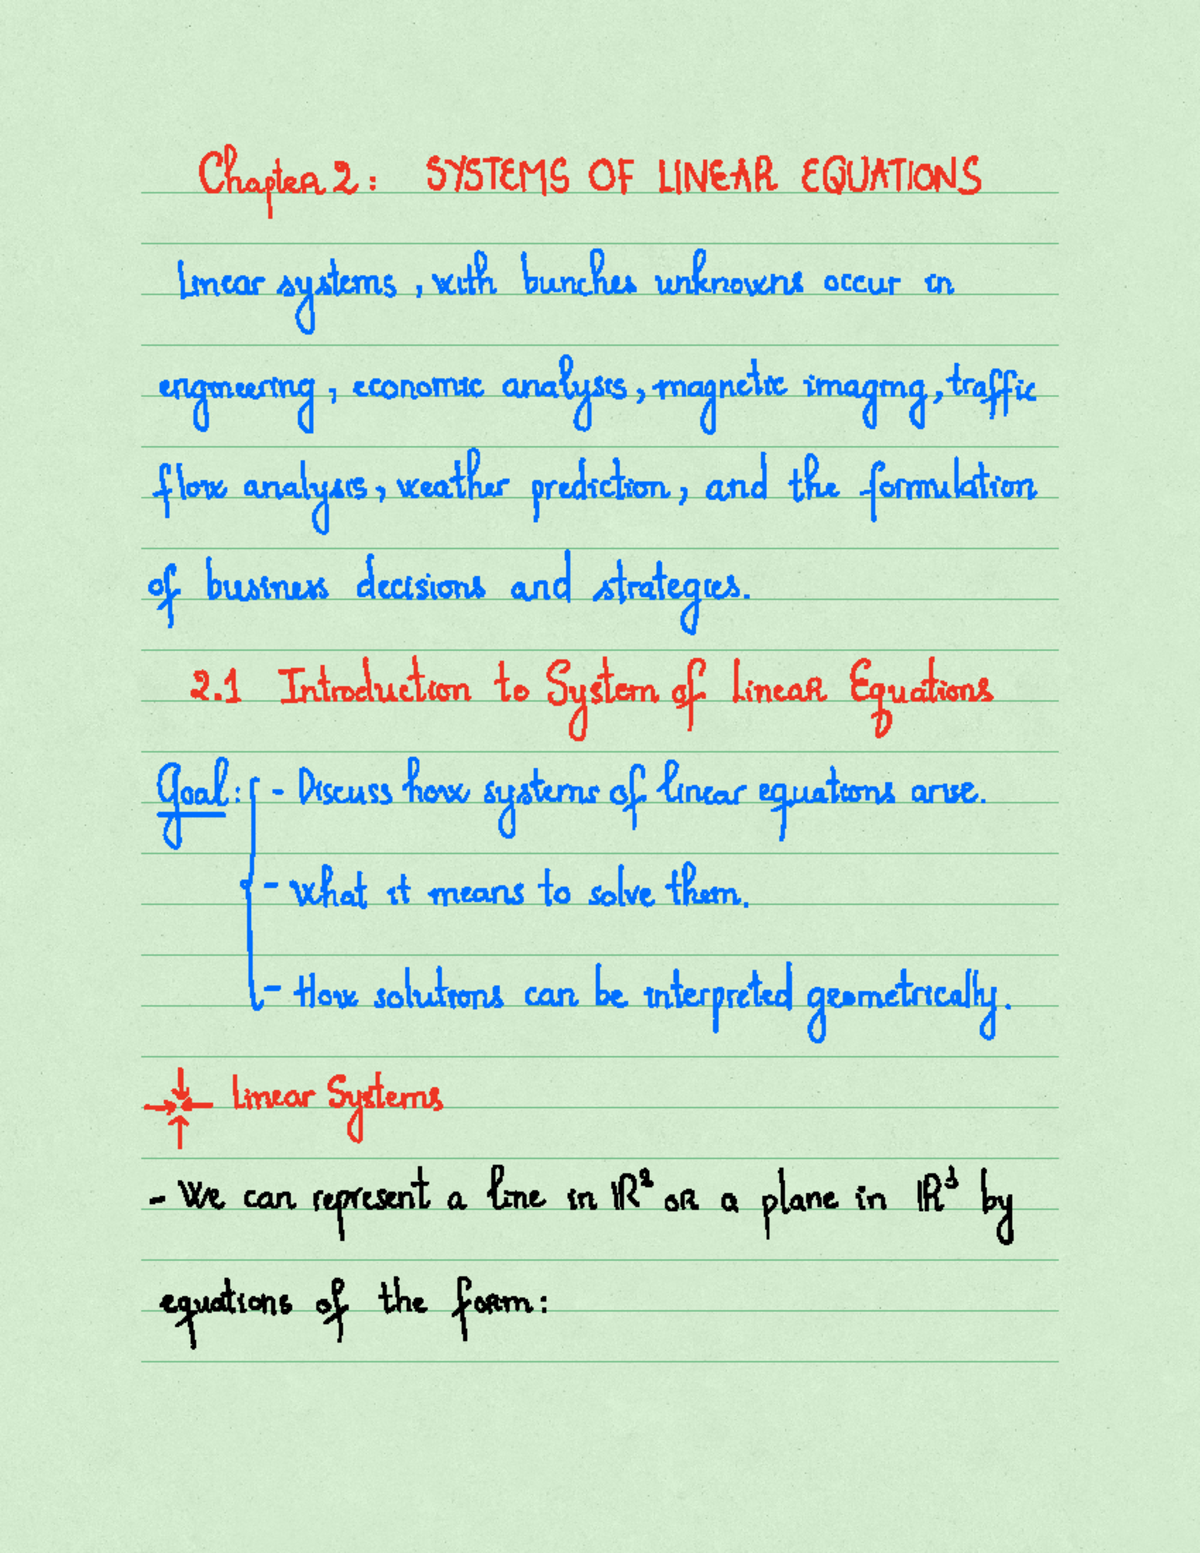 Chapter 2: SYSTEMS OF LINEAR EQUATIONS
Linear systems, with bunches unknowns occur in
engineering, economic analysis, magnetic imaging, traffic
flow analysis, weather prediction, and the formulation
of business decisions and strategies.
2.1 Introduction to System of Linear Equations
Goal: - Discuss how systems of linear equations arise.
- What it means to solve them.
- How solutions can be interpreted geometrically.
Linear Systems
- We can represent a line in ℝ² or a plane in ℝ³ by
equations of the form: